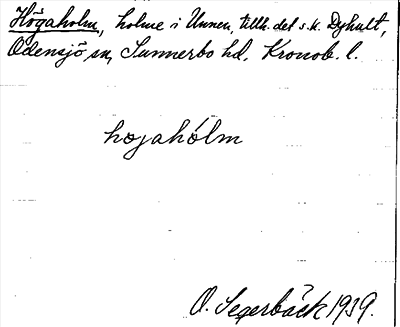 Högaholm, holme i Unnen, tillh. det s.k. Dyhult,
Odensjö sn, Sunnerbo hd, Kronob. l.
hogahólm
O. Segerbäck 1939.